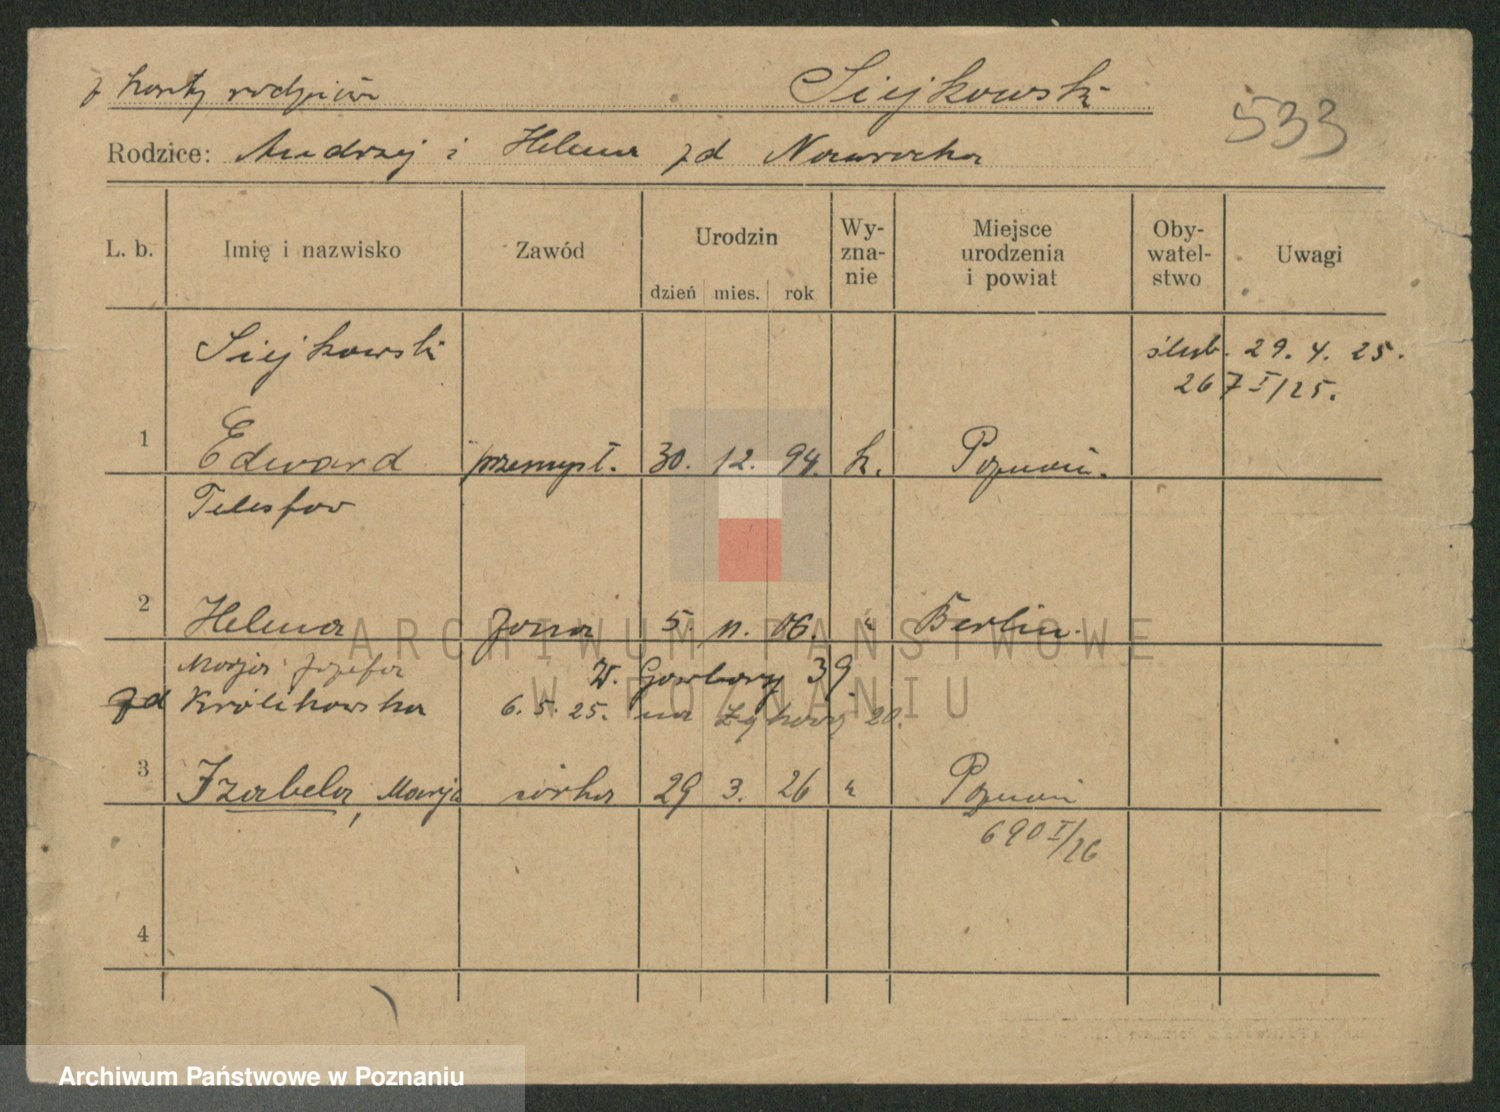 z karty rodziców Siejkowski
533
Rodzice: Andrzej i Helena zd Nawrocka
L. b. Imię i nazwisko Zawód Urodzin dzień mies. rok Wy-zna-nie Miejsce urodzenia i powiat Oby-watel-stwo Uwagi
Siejkowski ślub. 29. 4. 25.
267 I/25.
1 Edward przemysł. 30. 12. 94. k. Poznań.
Telesfor
2 Helena żona 5. 11. 06. " Berlin.
Marja Józefa W. Garbary 39
zd Królikowska 6. 5. 25. na 20.
3 Izabela, Marja córka 29 3. 26 " Poznań
690 I/26
4
ARCHIWUM PAŃSTWOWE
W POZNANIU
Archiwum Państwowe w Poznaniu